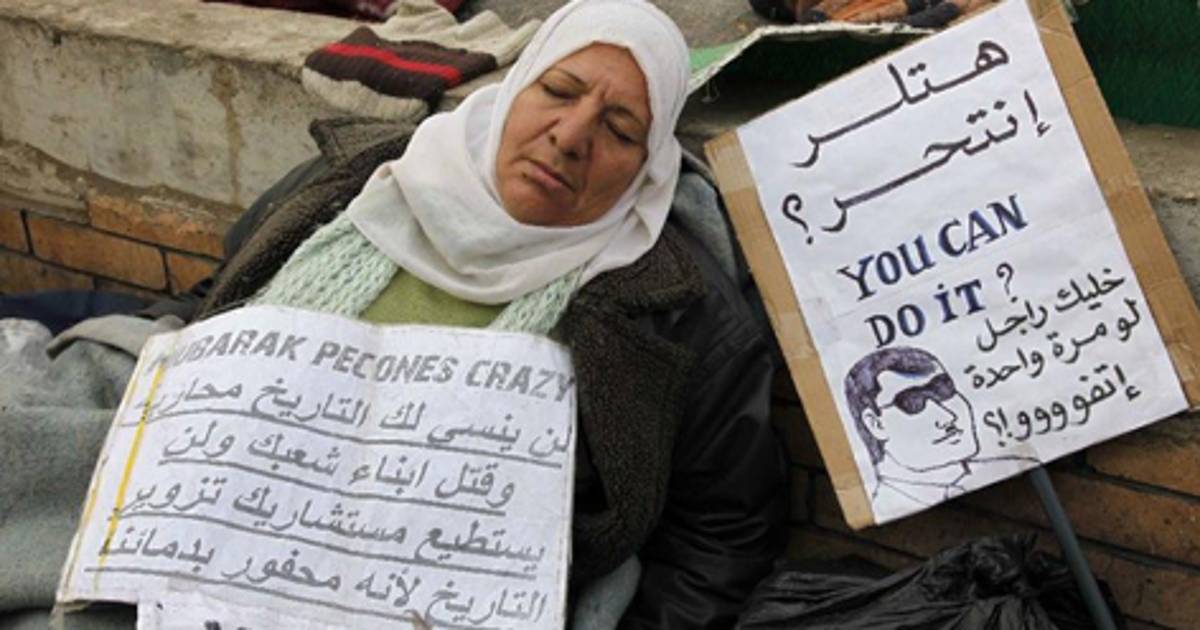 MUBARAK PECONES CRAZY
لن ينسي لك التاريخ محاربة
وقتل ابناء شعبك ولن
يستطيع مستشاريك تزوير
التاريخ لأنه محفور بدمائنا
هتلر
إنتحر؟
YOU CAN
DO iT ?
خليك راجل
لو مرة واحدة
إتفوووو!؟